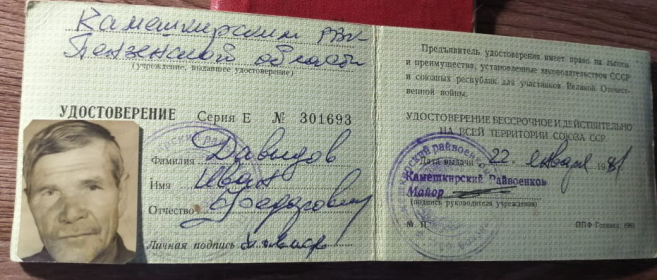 Камешкирским РВК
Пензенской области
(учреждение, выдавшее удостоверение)
УДОСТОВЕРЕНИЕ Серия Е № 301693
Фамилия Давыдов
Имя Иван
Отчество
Личная подпись
Предъявитель удостоверения имеет право на льготы
и преимущества, установленные законодательством СССР
и союзных республик для участников Великой Отечест-
венной войны.
УДОСТОВЕРЕНИЕ БЕССРОЧНОЕ И ДЕЙСТВИТЕЛЬНО
НА ВСЕЙ ТЕРРИТОРИИ СОЮЗА ССР
Дата выдачи 22 января 1981
Камешкирский Райвоенком
Майор
(подпись руководителя учреждения)
М. П.
ППФ Гознака. 1980